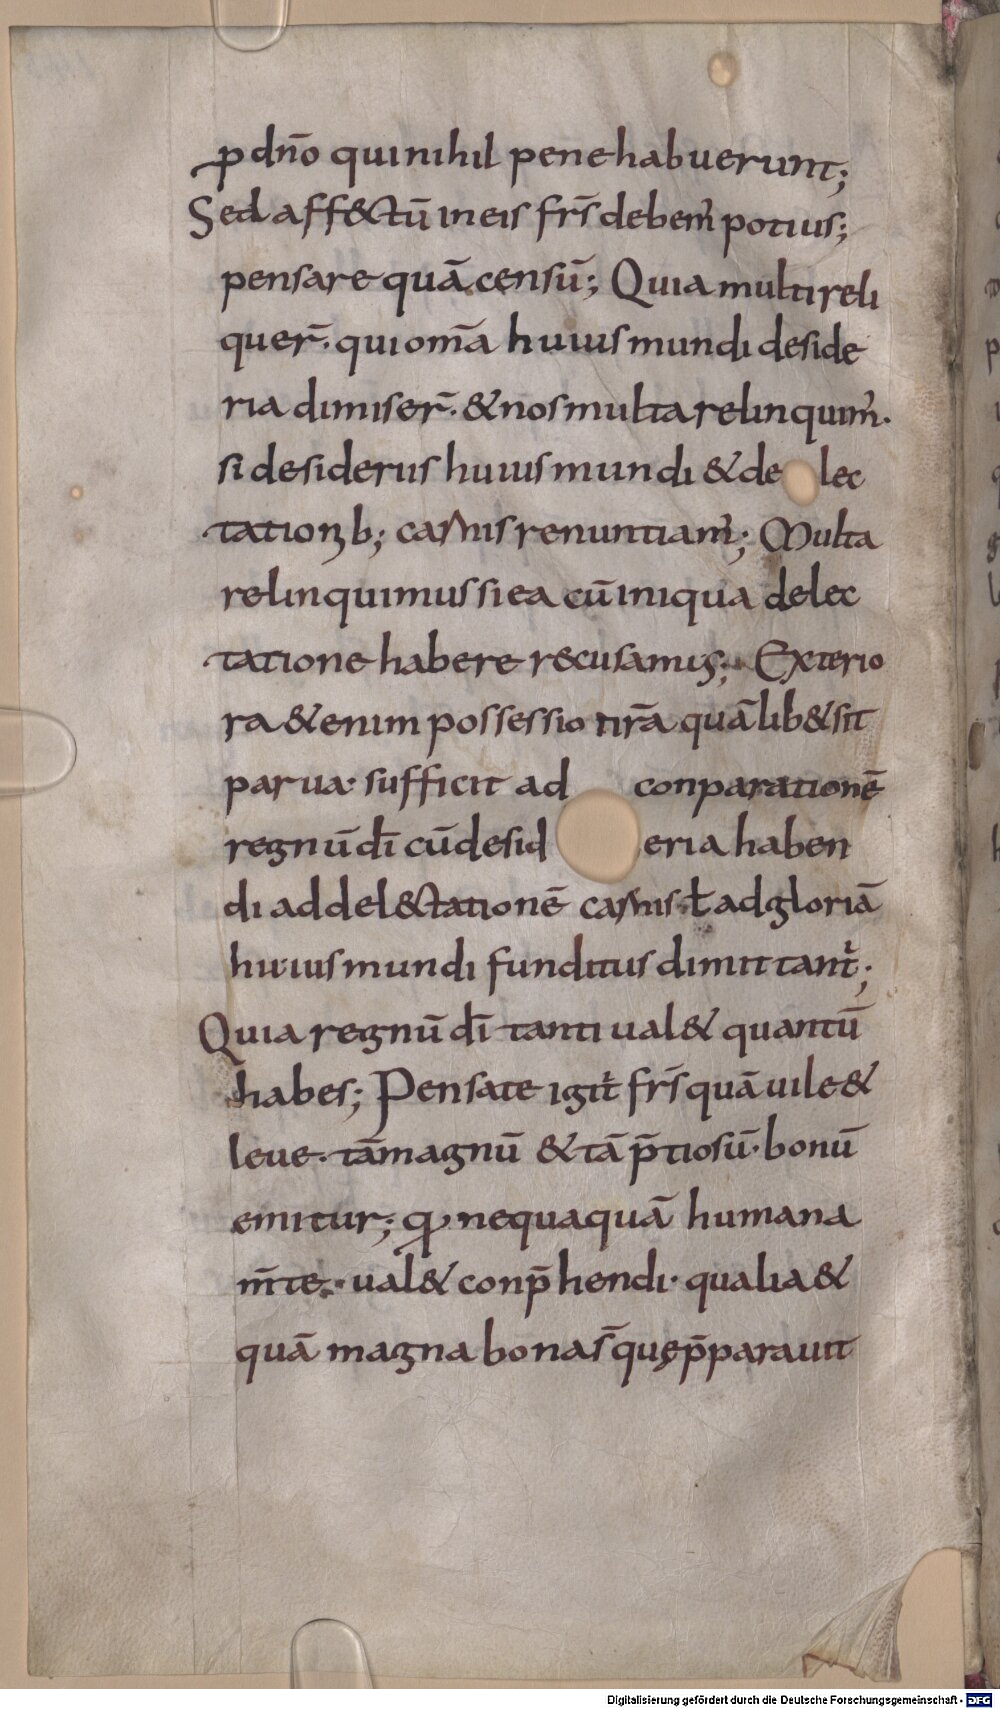 ꝓ dn̄o qui nihil pene habuerunt;
Sed aff&tū in eis fr̄s debem᾽ potius;
pensare quā censū; Quia multi reli
quer̄. qui om̄a huius mundi deside
ria dimiser̄. & nos multa relinquim᾽.
si desideriis huius mundi & de lec
tationib; carnis renuntiam᾽; Multa
relinquimus si ea cū iniqua delec
tatione habere recusamus; Exterio
ra &enim possessio nr̄a quālib& sit
parua· sufficit ad conparationē
regnū dī cū desid eria haben
di ad del&tationē carnis ł ad gloriā
huius mundi funditus dimittant᾽;
Quia regnū dī tanti ual& quantū
habes; Pensate igit᾽ fr̄s quā uile &
leue. tā magnū & tā p̄tiosū· bonū
emitur; qđ nequaquā humana
m̄te· ual& conp̄hendi· qualia &
quā magna bona s̄ quę p̄parauit
Digitalisierung gefördert durch die Deutsche Forschungsgemeinschaft - DFG